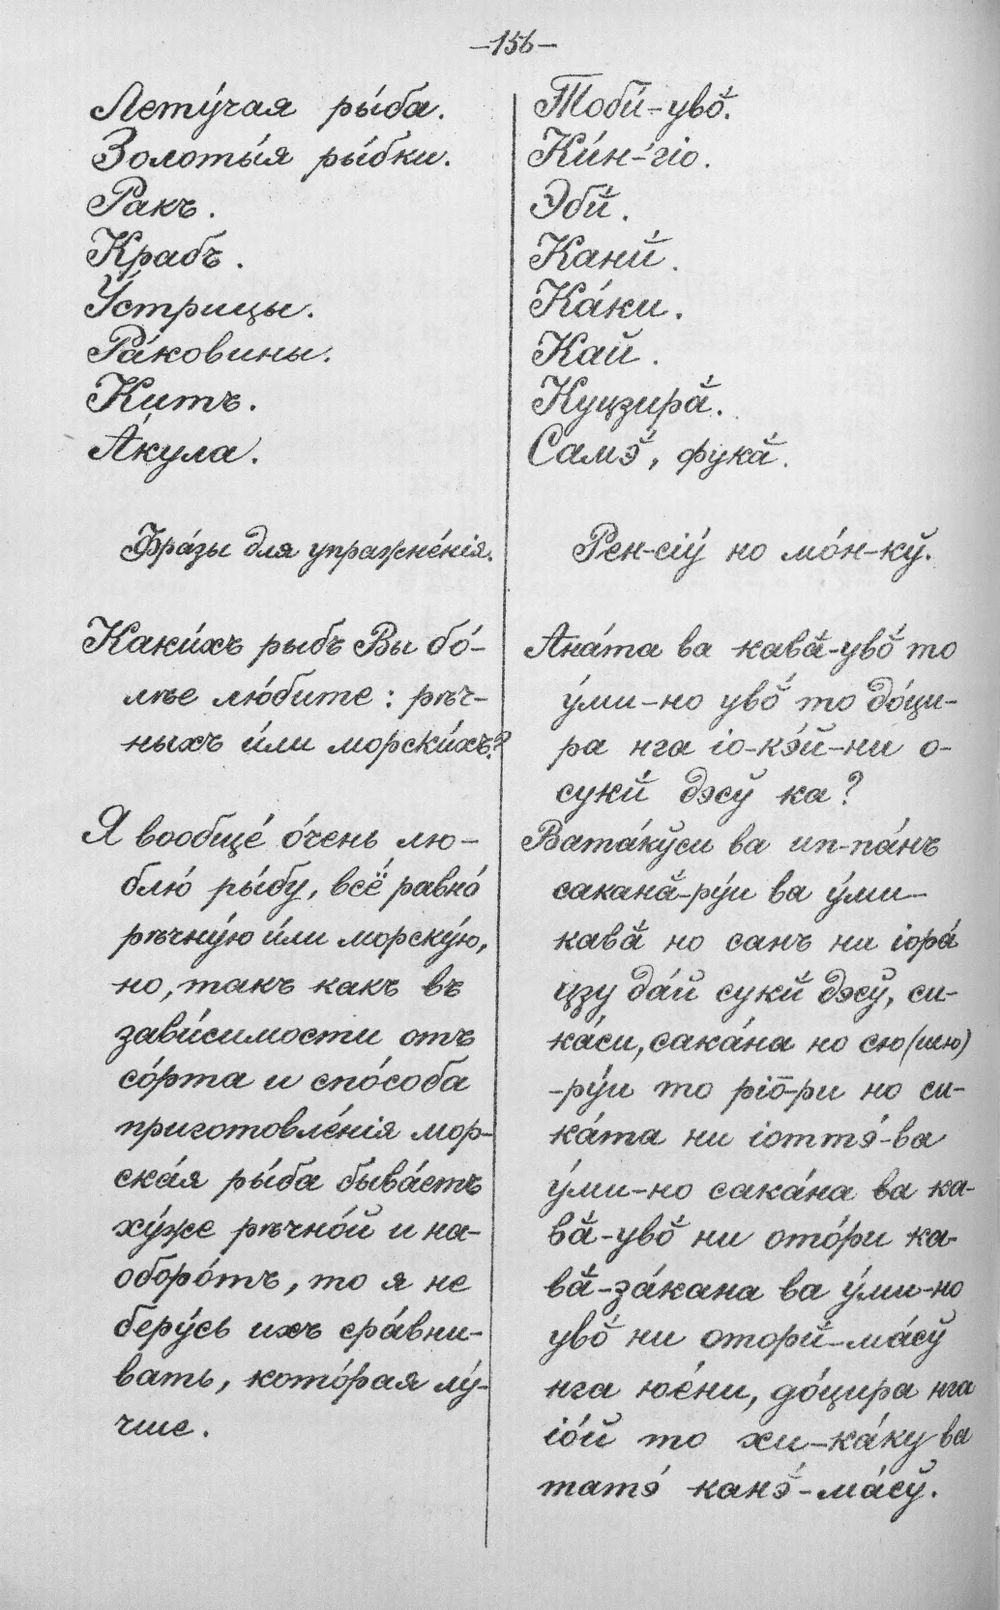 —156—
Лету́чая ры́ба.
Золоты́я ры́бки.
Ракъ.
Крабъ.
У́стрицы.
Ра́ковины.
Китъ.
Аку́ла.
Фра́зы для упражне́нія.
Каки́хъ рыбъ Вы бо́-
лѣе лю́бите: рѣч-
ныхъ и́ли морски́хъ?
Я вообще́ о́чень лю-
блю́ ры́бу, всё равно́
рѣчну́ю и́ли морску́ю,
но, такъ какъ въ
зави́симости отъ
со́рта и спо́соба
приготовле́нія мор-
ска́я ры́ба быва́етъ
ху́же рѣчно́й и на-
оборо́тъ, то я не
беру́сь ихъ сра́вни-
вать, кото́рая лу́-
чше.
Тоби́-уво̆́.
Ки́н-гіо.
Эбй́.
Канй́.
Ка́ки.
Кай.
Куцзирӑ́.
Самэ̆́, фукӑ́.
Рен-сіу́ но мо́н-кў.
Ана́та ва кавӑ́-уво̆́ то
у́ми-но уво̆́ то до́ци-
ра нга іо-кэ́й-ни о-
сукй́ дэсў ка?
Вата́кўси ва ип-па́нъ
саканӑ́-ру́и ва у́ми-
кавӑ́ но санъ ни іора́
цзу да́й сукй́ дэсў, си-
ка́си, сака́на но сю (шю)
-ру́и то ріо̄-ри но си-
ка́та ни іоттэ́-ва
у́ми-но сака́на ва ка-
вӑ́-уво̆́ ни ото́ри ка-
вӑ́-за́кана ва у́ми-но
уво̆́ ни оторй́-ма́сў
нга юе́ни, до́цира нга
іо́й то хи-ка́ку ва
татэ́ канэ̆́-ма́сў.